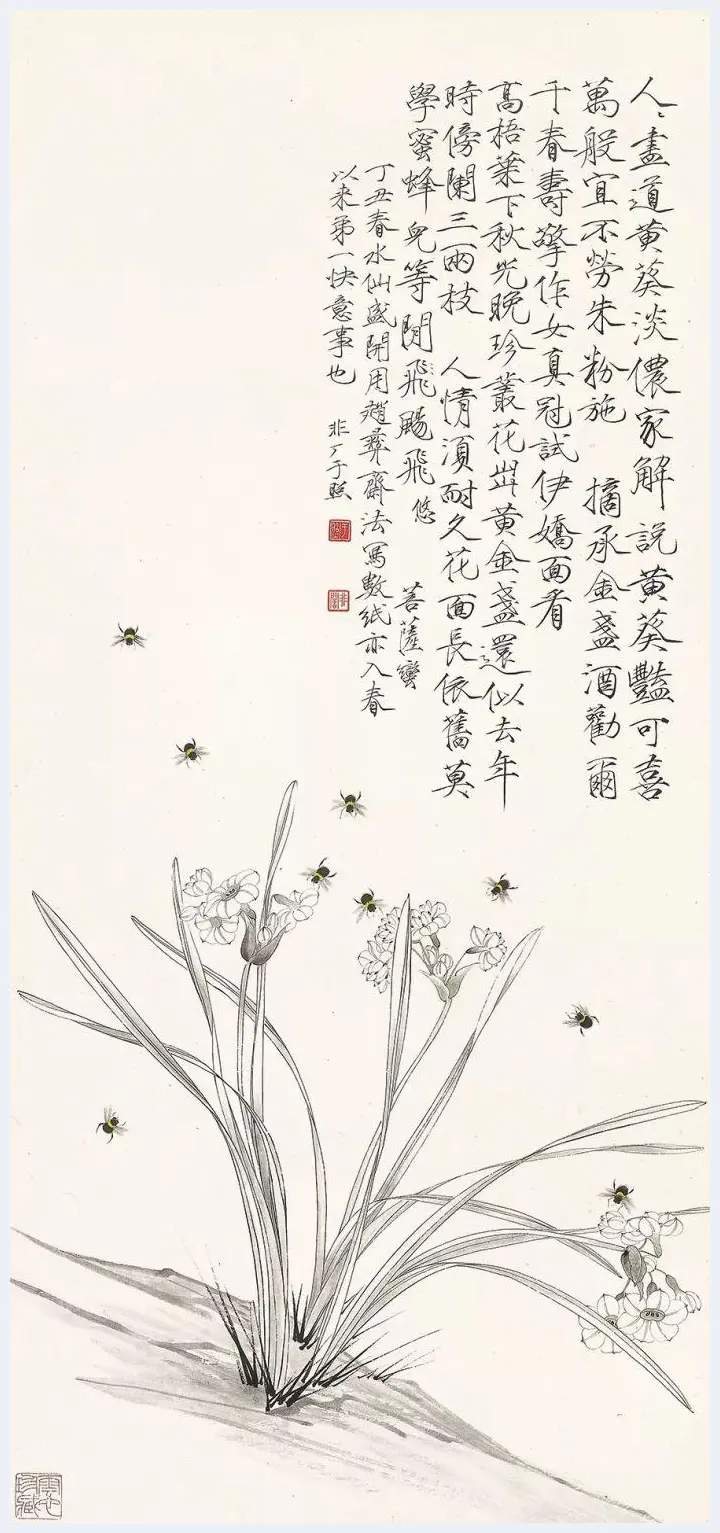 人〻盡道黄葵淡儂家解説黄葵豔可喜
萬般宜不勞朱粉施　摘承金盞酒勸爾
千春壽擎作女真冠試伊嬌面看
高梧葉下秋光晚珍叢花出黄金盞還似去年
時傍闌三兩枝　人情須耐久花面長依舊莫
學蜜蜂兒等閒飛颺飛　悠　菩薩蠻
丁丑春水仙盛開用趙彝齋法寫數紙亦入春
以来第一快意事也　非厂于照
珍藏